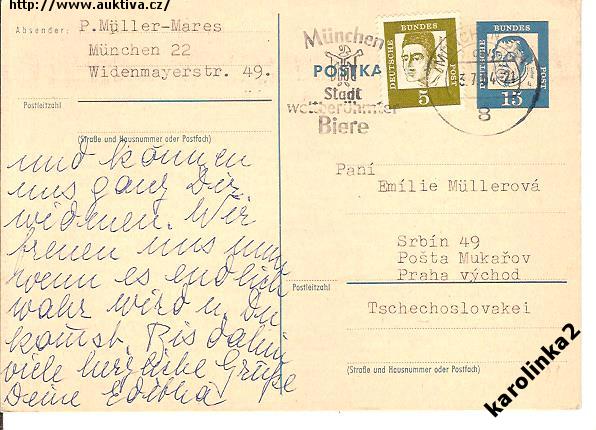 http://www.auktiva.cz/
Absender: P.Müller-Mares
München 22
Widenmayerstr. 49.
Postleitzahl
(Straße und Hausnummer oder Postfach)
und können
uns ganz Dir
widmen. Wir
freuen uns nun
wenn es endlich
wahr wird u. Du
komst. Bis dahin
viele herzliche Grüße
Deine Editha
München
Stadt
weltberühmter
Biere
POSTKA
DEUTSCHE BUNDES POST
5
DEUTSCHE BUNDES POST
15
8
Paní
Emílie Müllerová
Srbín 49
Pošta Mukařov
Praha východ
Postleitzahl
Tschechoslovakei
(Straße und Hausnummer oder Postfach)
karolinka2